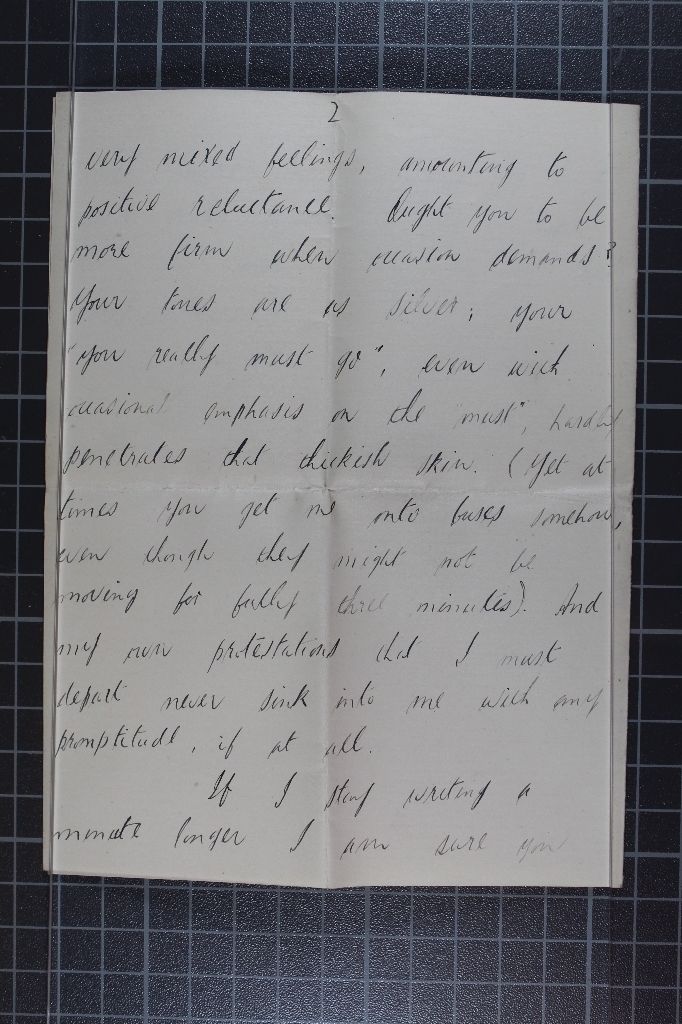 2
very mixed feelings, amounting to
positive reluctance. Ought you to be
more firm when occasion demands?
Your tones are as silver; your
"you really must go", even with
occasional emphasis on the "must", hardly
penetrates that thickish skin. (Yet at
times you get me onto buses somehow,
even though they might not be
moving for fully three minutes). And
my own protestations that I must
depart never sink into me with any
promptitude, if at all.
If I stay writing a
minute longer I am sure you